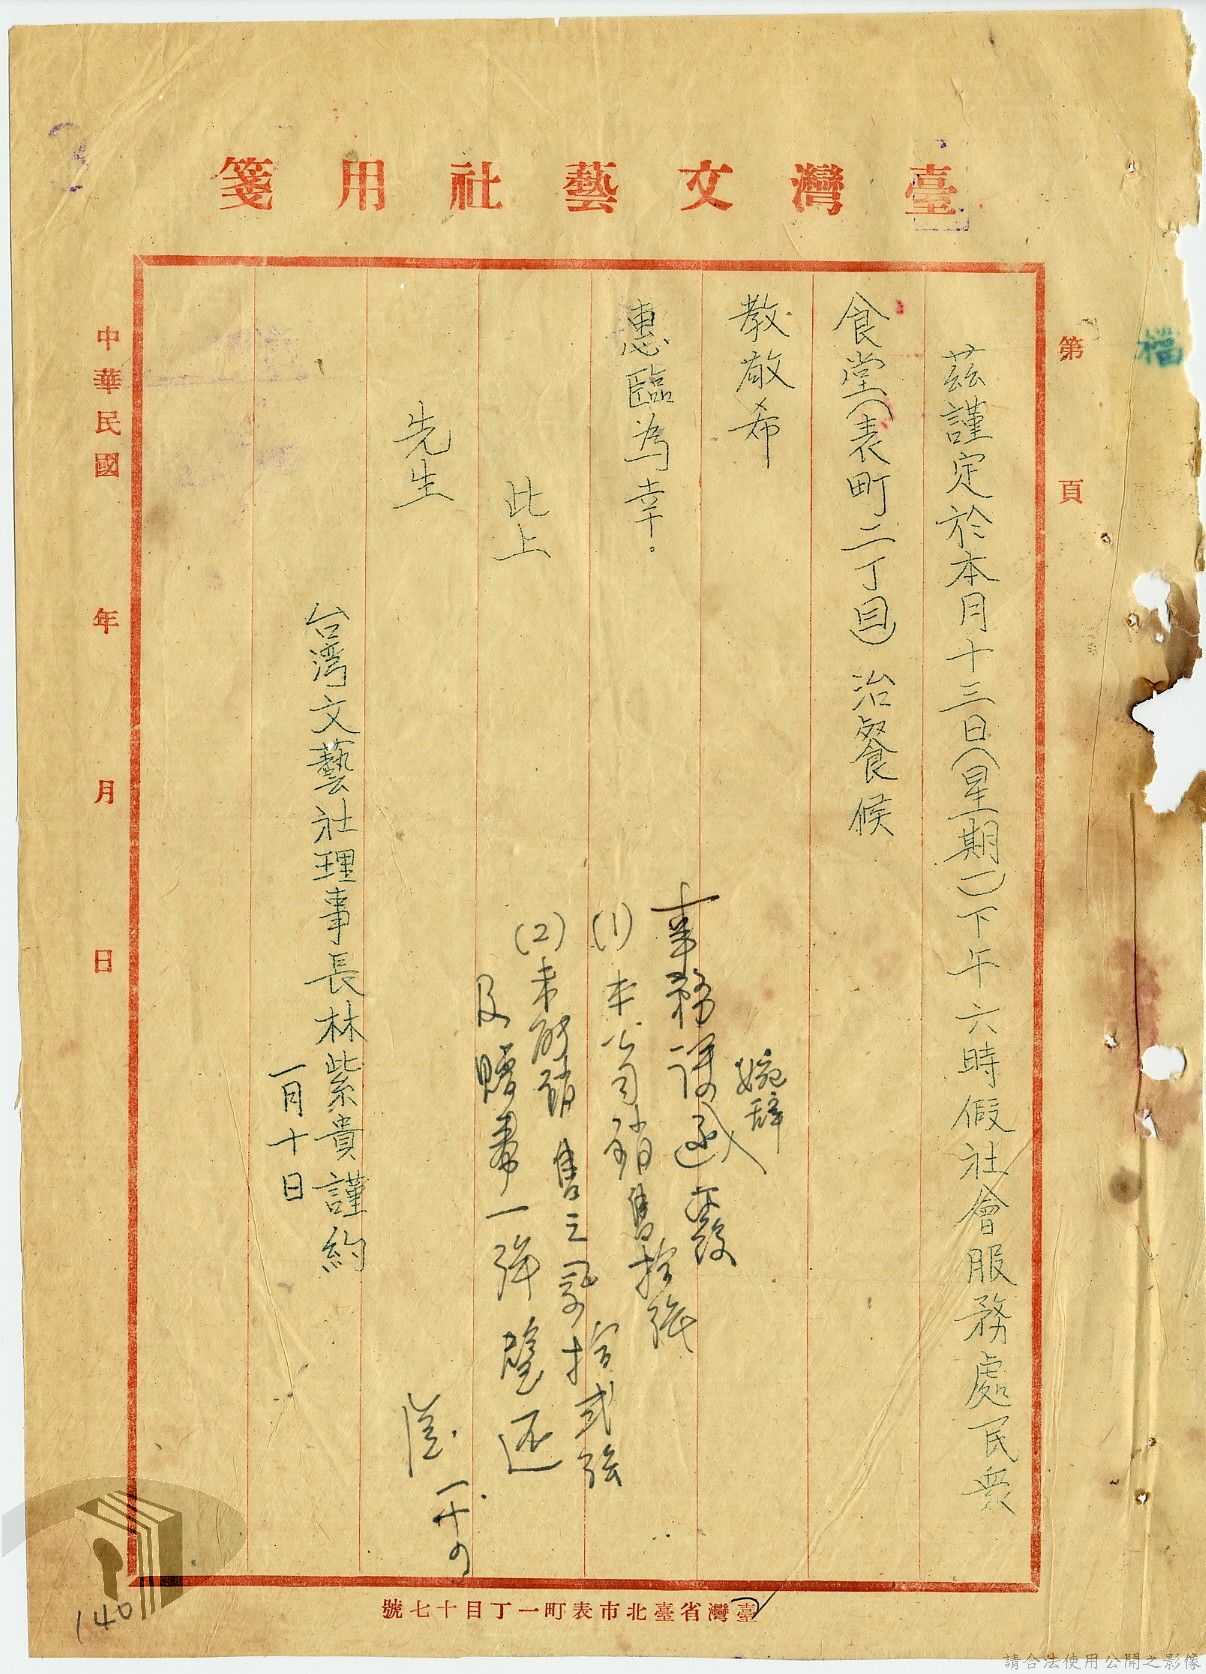 臺灣文藝社用箋
檔
第 頁
茲謹定於本月十三日(星期一)下午六時假社會服務處民衆
食堂(表町二丁目)治餐候
教敬希
惠臨為幸。
此上
先生
台湾文藝社理事長林紫貴謹約
一月十日
婉辞
事務課函覆
(1)本公司銷售拾張
(2)未能銷售之票拾弍張
及贈券一張璧还
一十四
中華民國 年 月 日
臺灣省臺北市表町一丁目十七號
140
請合法使用公開之影像